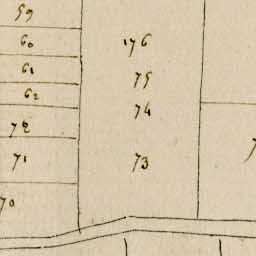 59
60
61
62
72
71
70
176
75
74
73